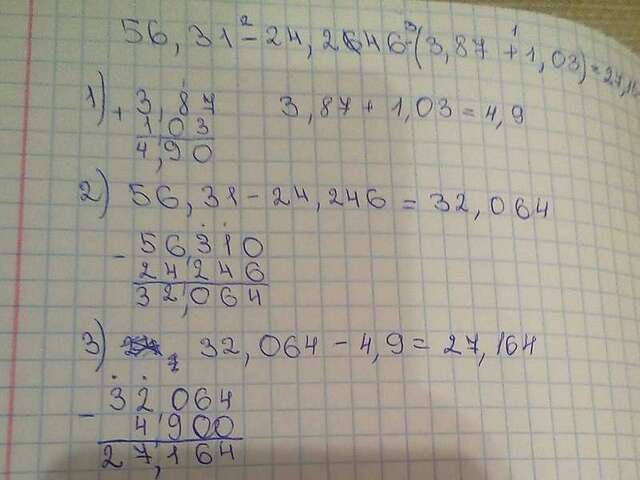 56,31 - 24,246 - (3,87 + 1,03) = 27,16
2 3 1
1) + 3,87 3,87 + 1,03 = 4,9
1 03
4,90
2) 56,31 - 24,246 = 32,064
- 56,310
24,246
32,064
3) 32,064 - 4,9 = 27,164
- 32,064
4,900
27,164